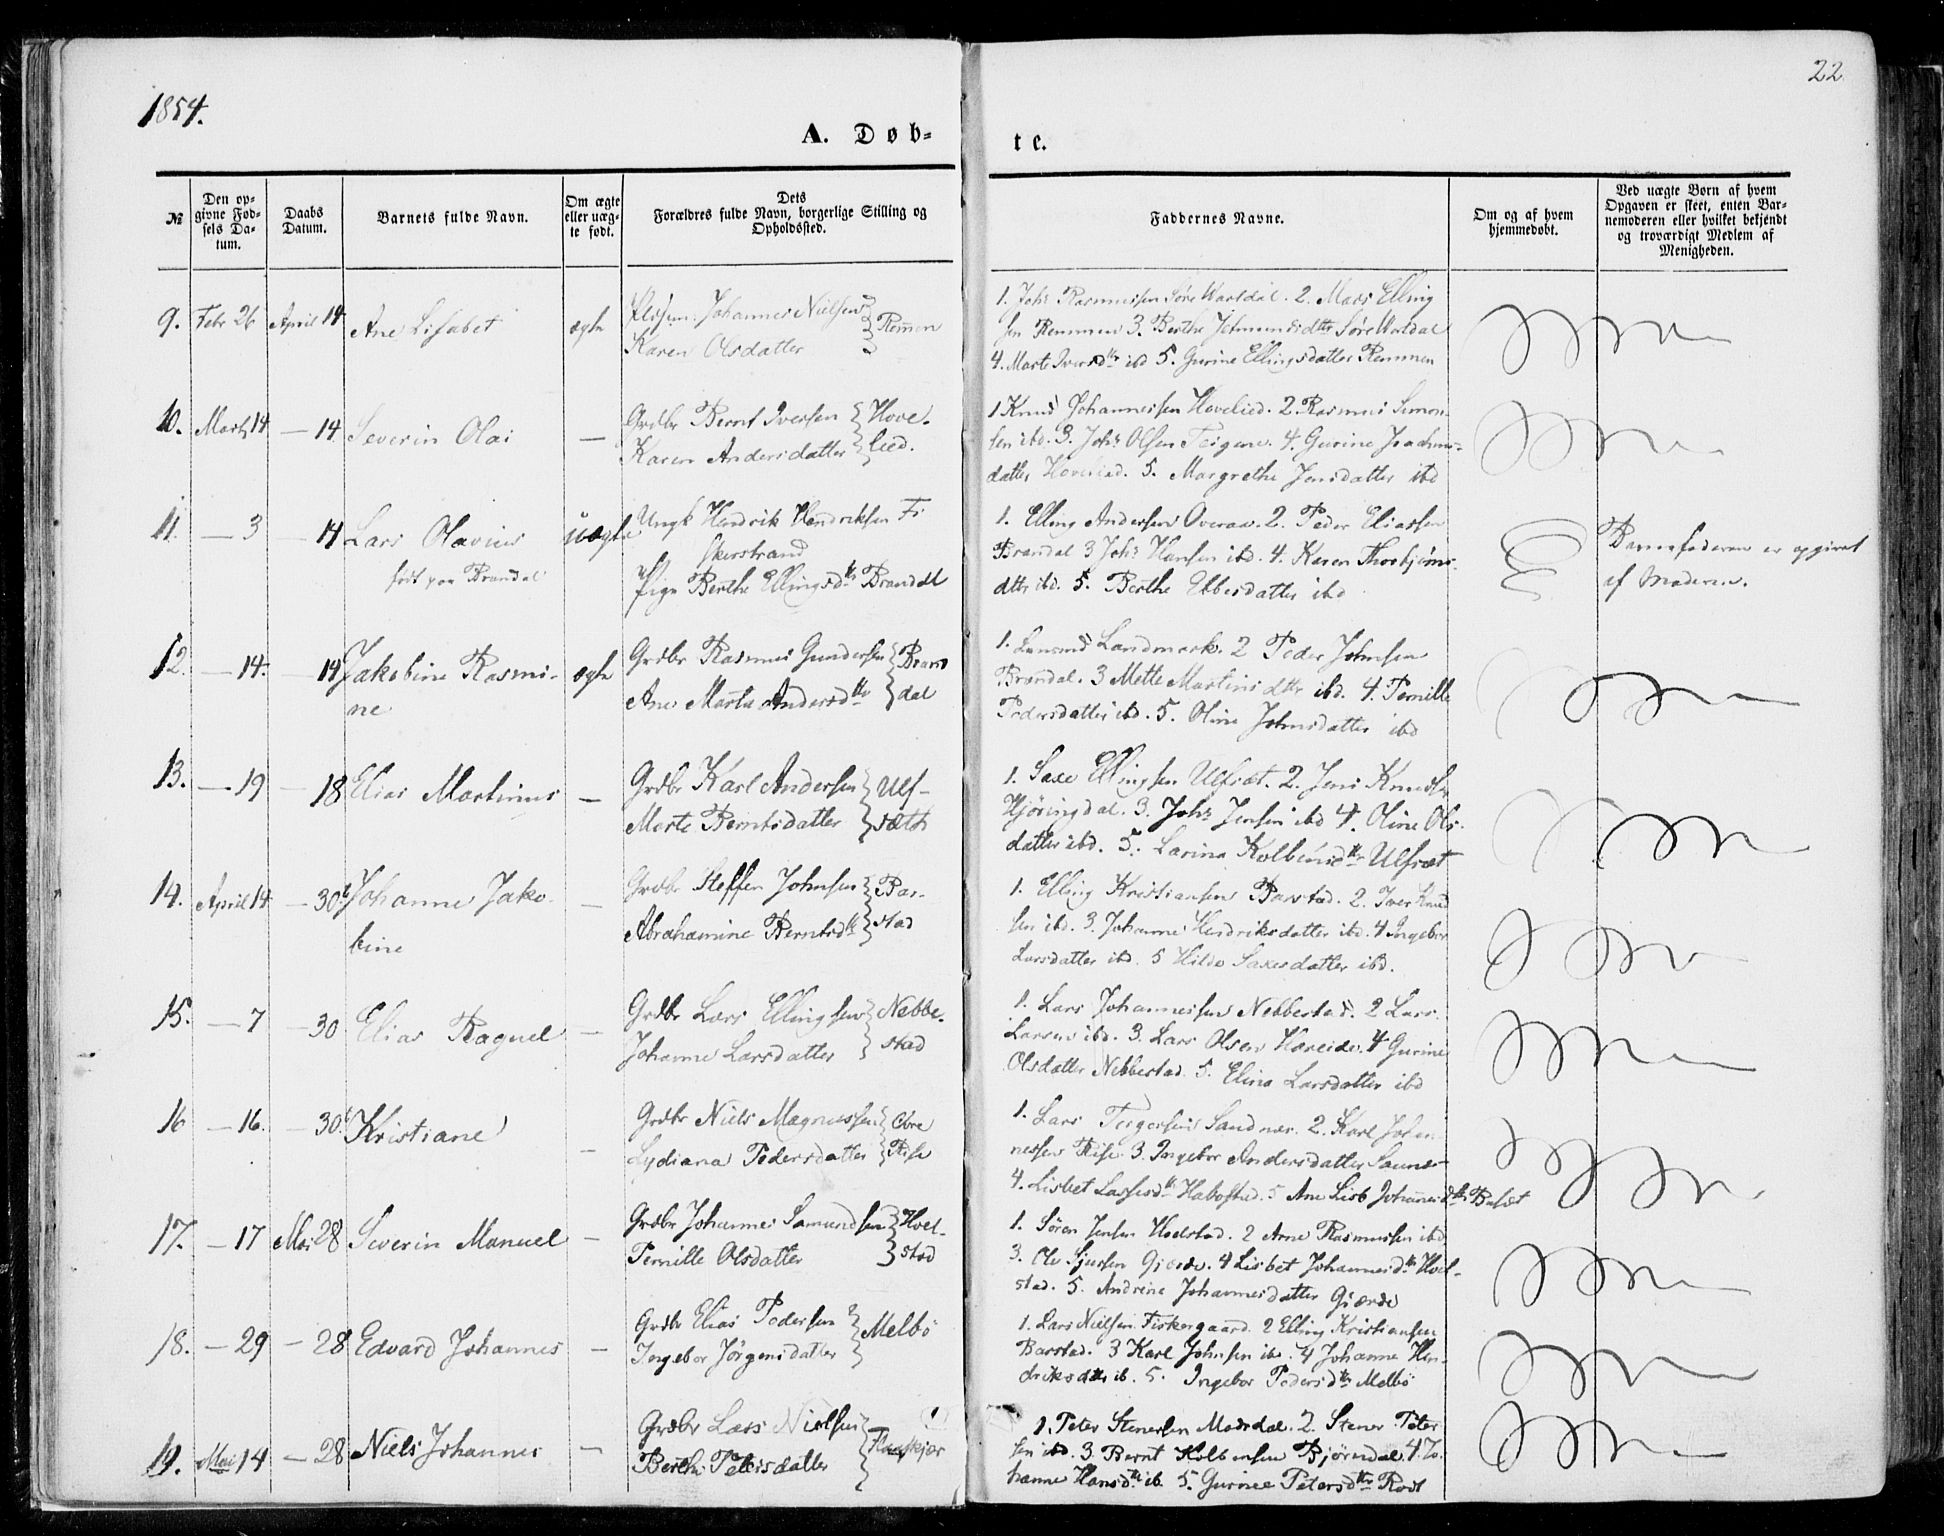 1854.
22
A. Døb-
te.
№
Den op-
givne Fød-
sels Da-
tum.
Daabs
Datum.
Barnets fulde Navn.
Om ægte
eller uæg-
te født.
Dets
Forældres fulde Navn, borgerlige Stilling og
Opholdssted.
Faddernes Navne.
Om og af hvem
hjemmedøbt.
Ved uægte Børn af hvem
Opgaven er skeet, enten Bar-
nemoderen eller hvilket bekjendt
og troværdigt Medlem af
Menigheden.
9. Febr 26 April 14 Ane Lisabet ægte
Johannes Nielsen
Karen Olsdatter } Remen
1. Johs Rasmussen Søre Wartdal. 2. Mads Elling
sen Remmen 3. Berthe Søre Wartdal
4. Marte Iversdtr ibd 5. Gurine Ellingsdatter Remmen
10. Marts 14 — 14 Severin Olai —
Grdbr Bernt Iversen } Hove-
Karen Andersdatter } lied.
1 Knud Johannessen Hovelied. 2. Rasmus Simon-
sen ibd. 3. Johs Olsen Teigene. 4. Gurine Joachims-
datter Hovelied. 5. Margrethe Jensdatter ibd
11. — 3 — 14 Lars Olavius uægte
født paa Brandal
Ungk Hendrik Hendriksen Fi
skerstrand
Pige Berthe Ellingsdtr Brandal
1. Elling Andersen Overaa. 2. Peder Eliassen
Brandal 3 Johs Hansen ibd. 4. Karen Thorbjørns-
dtr ibd. 5. Berthe Ebbesdatter ibd
Barnefaderen er opgivet
af Moderen.
12. — 14. — 14 Jakobine Rasmi-
ne ægte
Grdbr Rasmus Gundersen } Bran
Ane Marta Andersdtr } dal
1. Landmark. 2 Peder Johnsen
Brandal. 3 Mette Martinsdtr ibd. 4. Pernille
Pedersdatter ibd. 5. Oline Johnsdatter ibd
13. — 19 — 18 Elias Martinus —
Grdbr Karl Andersen } Ulf-
Marte Berntsdatter } sæth
1. Saxe Ellingsen Ulfsæt. 2. Jens Knuds
Hjøringdal. 3. Johs Jensen ibd 4. Oline Ols-
datter ibd. 5. Larina Kolbensdtr Ulfsæt
14. April 14 — 30 Johanne Jako-
bine —
Grdbr Steffen Johnsen } Bar-
Abrahamine Berntsdtr } stad
1. Elling Kristiansen Barstad. 2. Iver Knud
sen ibd. 3. Johanne Hendriksdatter ibd. 4 Ingebor
Larsdatter ibd. 5 Hilde Saxesdatter ibd.
15. — 7 — 30 Elias Raguel —
Grdbr Lars Ellingsen } Nebbe-
Johanne Larsdatter } stad
1. Lars Johannessen Nebbestad. 2 Lars
Larsen ibd. 3. Lars Olsen Hareide. 4 Gurine
Olsdatter Nebbestad. 5. Elina Larsdatter ibd
16 — 16. — 30. Kristiane —
Grdbr Niels Magnussen } Øvre
Lydiana Pedersdatter } Rise
1. Lars Torgersen Sandnær. 2. Karl Johan-
nessen Rise. 3. Ingebor Andersdatter
4. Lisbet Lassesdtr Habostad. 5 Ane Lisb Johannesdtr
17. — 17 Mai 28 Severin Manuel —
Grdbr Johannes Samundsen } Hvel-
Pernille Olsdatter } stad
1. Søren Jensen 2 Arne Rasmussen ibd
3. Ole Sjursen Gjærde. 4 Lisbet Johannesdtr Hvel-
stad. 5. Andrine Johannesdatter Giærde
18. — 29 — 28 Edvard Johannes —
Grdbr Elias Pedersen
Ingebor Jørgensdatter } Melbö
1. Lars Nielsen Fiskergaard. 2 Elling Kristiansen
Barstad. 3 Karl Johnsen ibd. 4 Johanne Hen-
driksdtr ib. 5. Ingebor Pedersdtr Melbö
19. Mai 14 — 28 Niels Johannes —
Grdbr Lars Nielsen
Berthe Petersdatter } Flaaskjær
1. Peter Stenersen Maardal. 2. Stener Peter
sen ibd. 3 Bernt Kolbensen Bjørndal. 4. Jo-
hanne Hansdtr ib. 5. Gurine Petersdtr Rødt